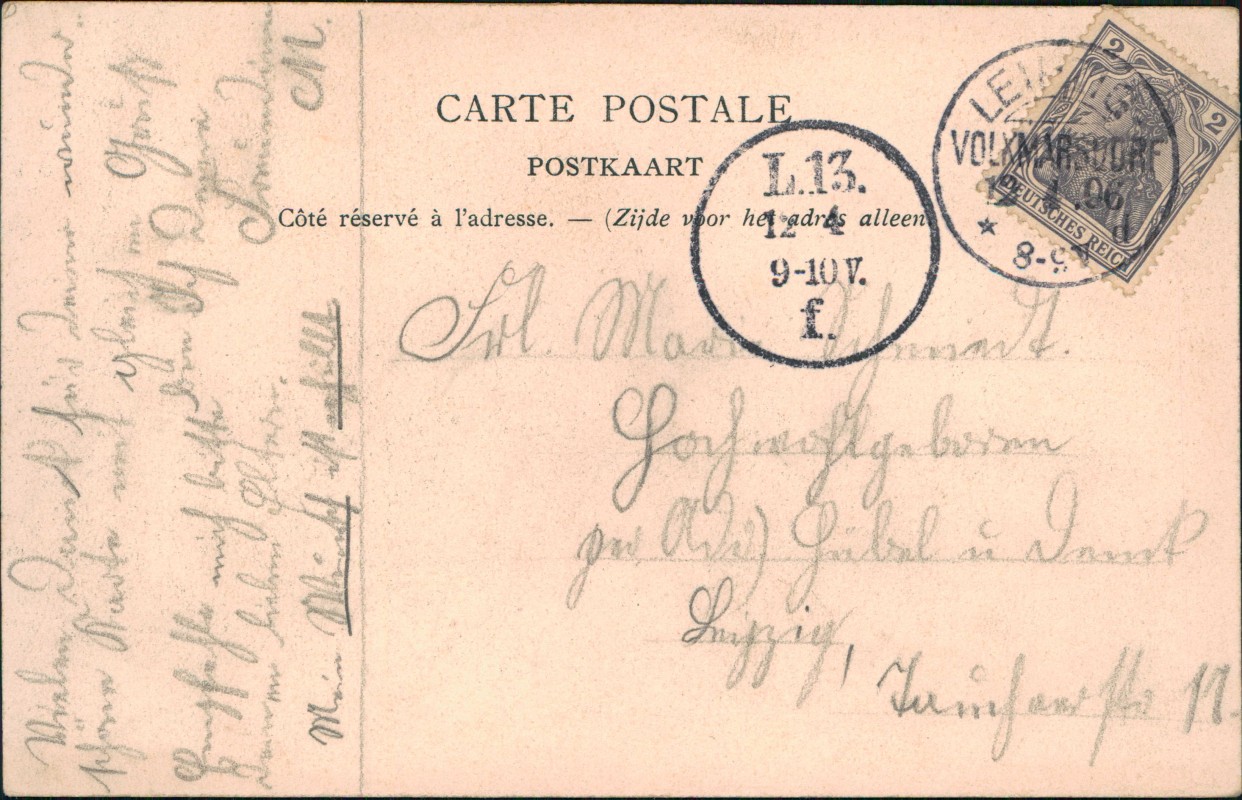 CARTE POSTALE
POSTKAART
Côté réservé à l'adresse. — (Zijde voor het adres alleen
L.13.
12 4
9-10 V.
f.
LEIPZIG
VOLKMARSDORF
12 4.06
8-9V
d
2 2
DEUTSCHES REICH
Frl. Marie Schmiedt.
Hochwohlgeboren
per Adr) Hübel u Denk
Leipzig,
Tauchaerstr 17.
Vielen Dank für deine wunder
schöne Karte mit gleichem Gruß
Empfehle mich bitte
deinen lieben Eltern.
M.
Mein Wunsch ist erfüllt